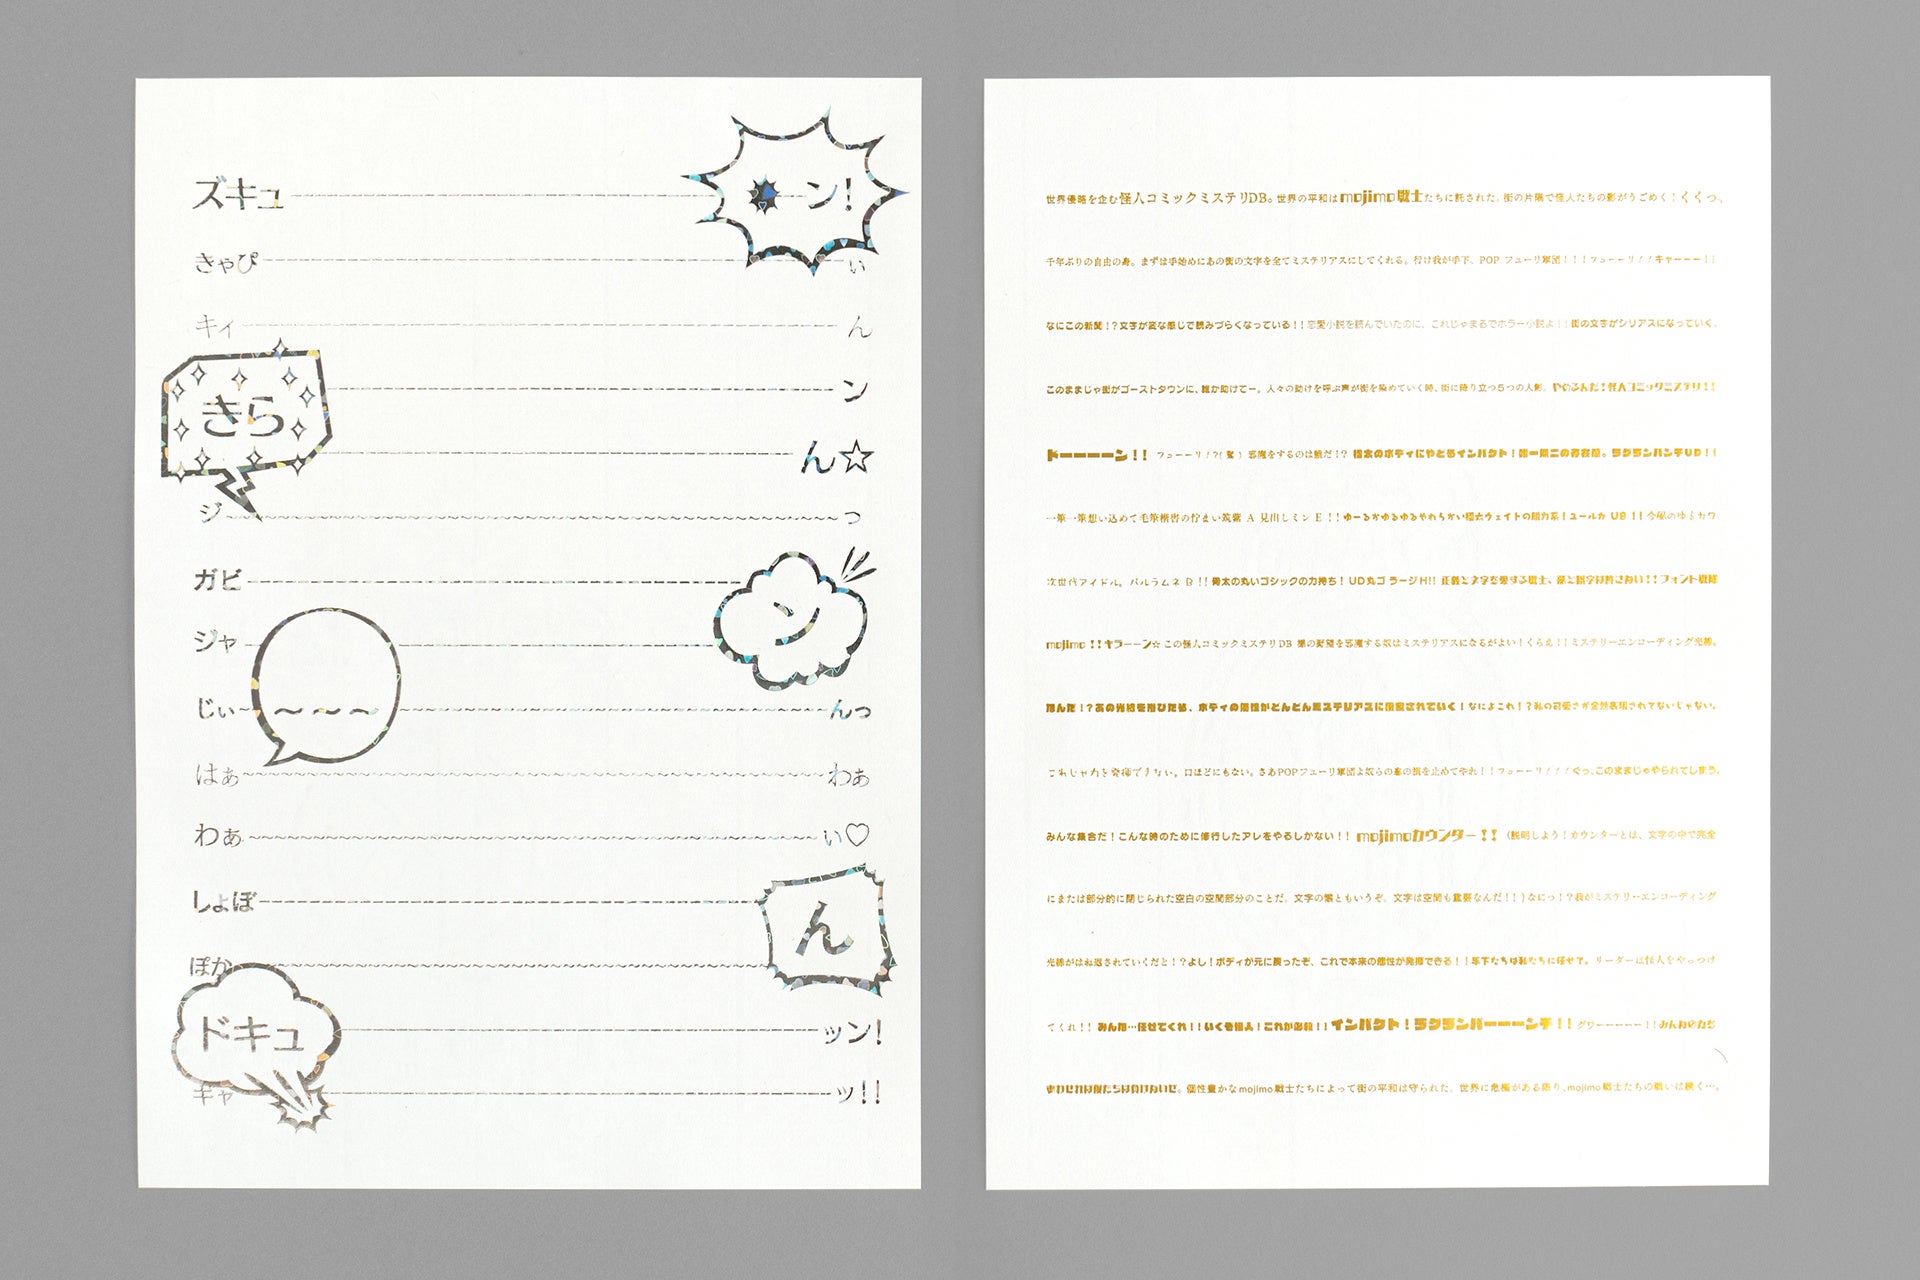 ズキュ ン!
きゃぴ い
キィ ん
ン
きら
ん☆
ジ っ
ガビ
ン
ジャ
じぃ~ ~~~ んっ
はぁ わぁ
わぁ い♡
しょぼ
ん
ぽか
ドキュ ッン!
ギャ ッ!!
世界侵略を企む怪人コミックミステリDB。世界の平和はmojimo戦士たちに託された。街の片隅で怪人たちの影がうごめく!くくっ、
千年ぶりの自由の身。まずは手始めにあの街の文字を全てミステリアスにしてくれる。行け我が手下、POP フューリ軍団!!!フューーリ!!キャーーー!!
なにこの新聞!?文字が変な感じで読みづらくなっている!!恋愛小説を読んでいたのに、これじゃまるでホラー小説よ!!街の文字がシリアスになっていく。
このままじゃ街がゴーストタウンに、誰か助けてー。人々の助けを呼ぶ声が街を染めていく時、街に降り立つ5つの人影。やめるんだ!怪人コミックミステリ!!
ドーーーーン!! フューーリ!?(驚) 邪魔をするのは誰だ!? 極太のボディにやどるインパクト!唯一無二の存在感。ラグランパンチUB!!
一筆一筆想い込めて毛筆楷書の佇まい筑紫 A 見出しミン E!!ゆーるかゆるゆるやわらかい極太ウェイトの魅力系!ユールカ UB!!今風のゆるカワ
次世代アイドル。パルラムネ B!!骨太の丸いゴシックの力持ち!UD丸ゴ ラージ H!! 正義と文字を愛する戦士、誤と脱字は許さない!!フォント戦隊
mojimo!!キラーーン☆この怪人コミックミステリDB 様の野望を邪魔する奴はミステリアスになるがよい!くらえ!!ミステリーエンコーディング光線。
なんだ!?あの光線を浴びたら、ボディの個性がどんどんミステリアスに固定されていく!なによこれ!?私の可愛さが全然表現されてないじゃない。
これじゃ力を発揮できない。口ほどにもない。さあPOPフューリ軍団よ奴らの息の根を止めてやれ!!フューーリ!!!ぐっ、このままじゃやられてしまう。
みんな集合だ!こんな時のために修行したアレをやるしかない!! mojimoカウンター!! (説明しよう!カウンターとは、文字の中で完全
にまたは部分的に閉じられた空白の空間部分のことだ。文字の懐ともいうぞ。文字は空間も重要なんだ!!)なにっ!?我がミステリーエンコーディング
光線がはね返されていくだと!?よし!ボディが元に戻ったぞ、これで本来の個性が発揮できる!!手下たちは私たちに任せて。リーダーは怪人をやっつけ
てくれ!! みんな…任せてくれ!!いくぞ怪人!これが必殺!!インパクト!ラグランパーーーンチ!!グワーーーーー!!みんなの力を
あわせれば僕たちは負けないぜ。個性豊かなmojimo戦士たちによって街の平和は守られた。世界に危機がある限り、mojimo戦士たちの戦いは続く…。